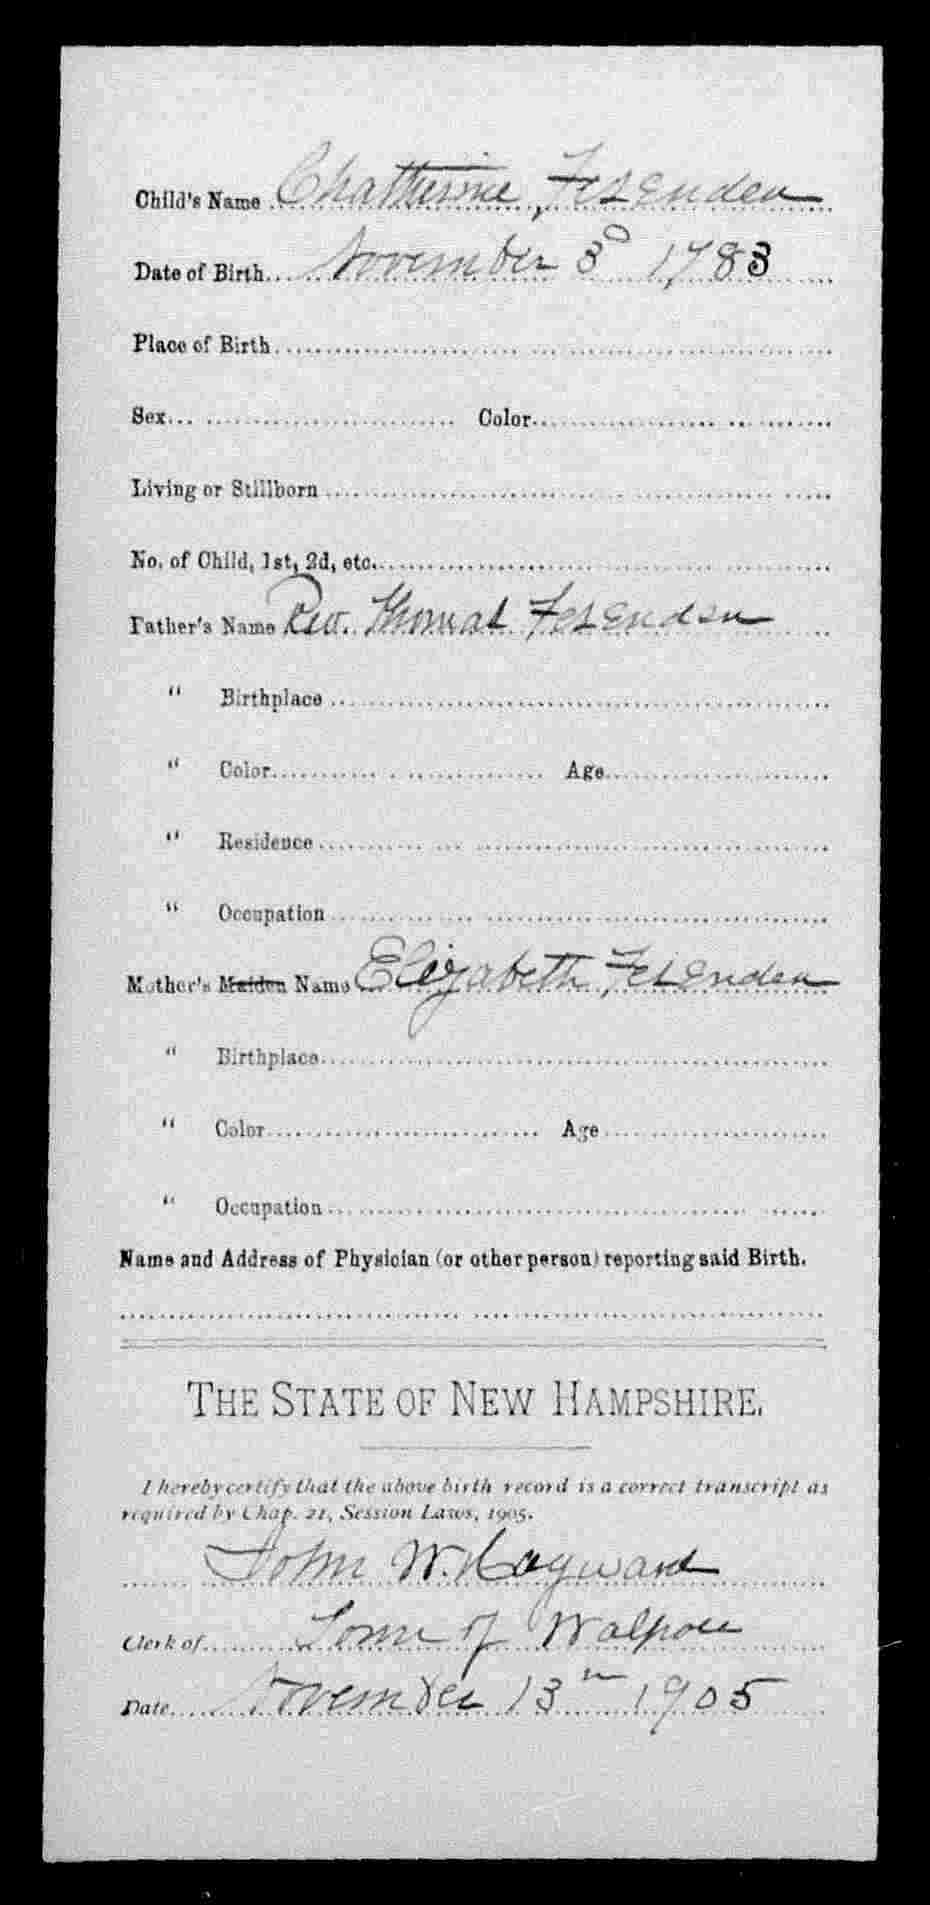 Child's Name Chatherine Fesenden
Date of Birth November 3D 1783
Place of Birth
Sex Color
Living or Stillborn
No. of Child, 1st, 2d, etc.
Father's Name Rev. Thomas Fesenden
" Birthplace
" Color Age
" Residence
" Occupation
Mother's Maiden Name Elizabeth Fesenden
" Birthplace
" Color Age
" Occupation
Name and Address of Physician (or other person) reporting said Birth.
THE STATE OF NEW HAMPSHIRE.
I hereby certify that the above birth record is a correct transcript as
required by Chap. 21, Session Laws, 1905.
John W. Hayward
Clerk of Town of Walpole
Date November 13th 1905